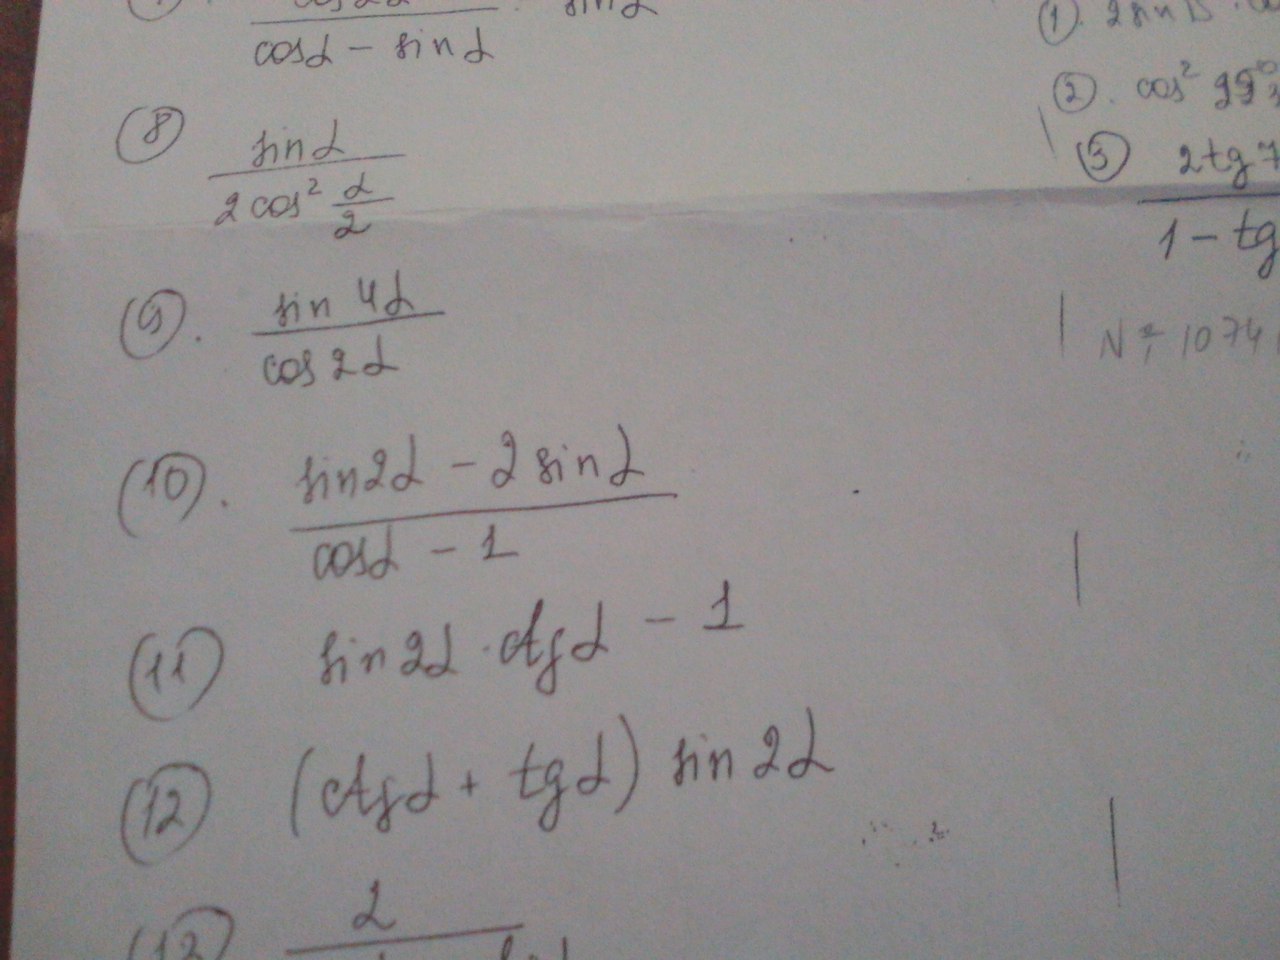 cosα - sinα
sinα
8 sinα
2cos² α/2
9. sin 4α
cos 2α
10. sin2α - 2 sinα
cosα - 1
11 sin2α · ctgα - 1
12 (ctgα + tgα) sin 2α
13 2
1.
2. cos²
3 2tg7
1 - tg
№ 1074